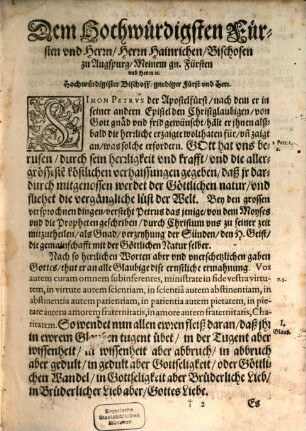 Dem Hochwürdigsten Für-
sten vnd Herrn/ Herrn Hainrichen/ Bischofen
zu Augspurg/ Meinem gn. Fürsten
vnd Herrn ꝛc.
Hochwürdigister Bischoff/ gnediger Fürst vnd Herr.
SIMON PETRVS der Apostelfürst/ nach dem er in
seiner andern Epistel den Christglaubigen/ von
Gott gnad vnd frid gewünscht/ hält er jhnen alß-
bald die herrliche erzaigte wolthaten für/ vñ zaigt
an/ was solche erfordern. GOtt hat vns be-
rufen/ durch sein herrligkeit vnd krafft/ vnd die aller-
grössiste köstlichen verhaissungen gegeben/ daß jr dar-
durch mitgenossen werdet der Göttlichen natur/ vnd
fliehet die vergängliche lüst der Welt. Bey den grossen
versprochnen dingen/ verstehet Petrus das jenige/ von dem Moyses
vnd die Propheten geschriben/ durch Christum vns zu seiner zeit
mitzuthailen/ als Gnad/ verzeyhung der Sünden/ den H. Geist/
die gemainschafft mit der Göttlichen Natur selber.
Nach so herrlichen Worten aber vnd vnerschetzlichen gaben
Gottes/ thut er an alle Glaubige dise ernstliche ermahnung. Vos
autem curam omnem subinferentes, ministrate in fide vestra virtu-
tem, in virtute autem scientiam, in scientia autem abstinentiam, in
abstinentia autem patientiam, in patientia autem pietatem, in pie-
tate autem amorem fraternitatis, in amore fraternitatis, Cha-
ritatem. So wendet nun allen ewren fleiß daran/ daß jhr
in ewrem Glauben tugent übt/ in der Tugent aber
wissenheit/ in wissenheit aber abbruch/ in abbruch
aber gedult/ in gedult aber Gottseligkeit/ oder Göttli-
chen Wandel/ in Gottseligkeit aber Brüderliche Lieb/
in Brüderlicher Lieb aber/ Gottes Liebe.
† 2 Es
2. Petr. 1.
v. 5.
1.
Glaub.
Bayerische
Staatsbibliothek
München